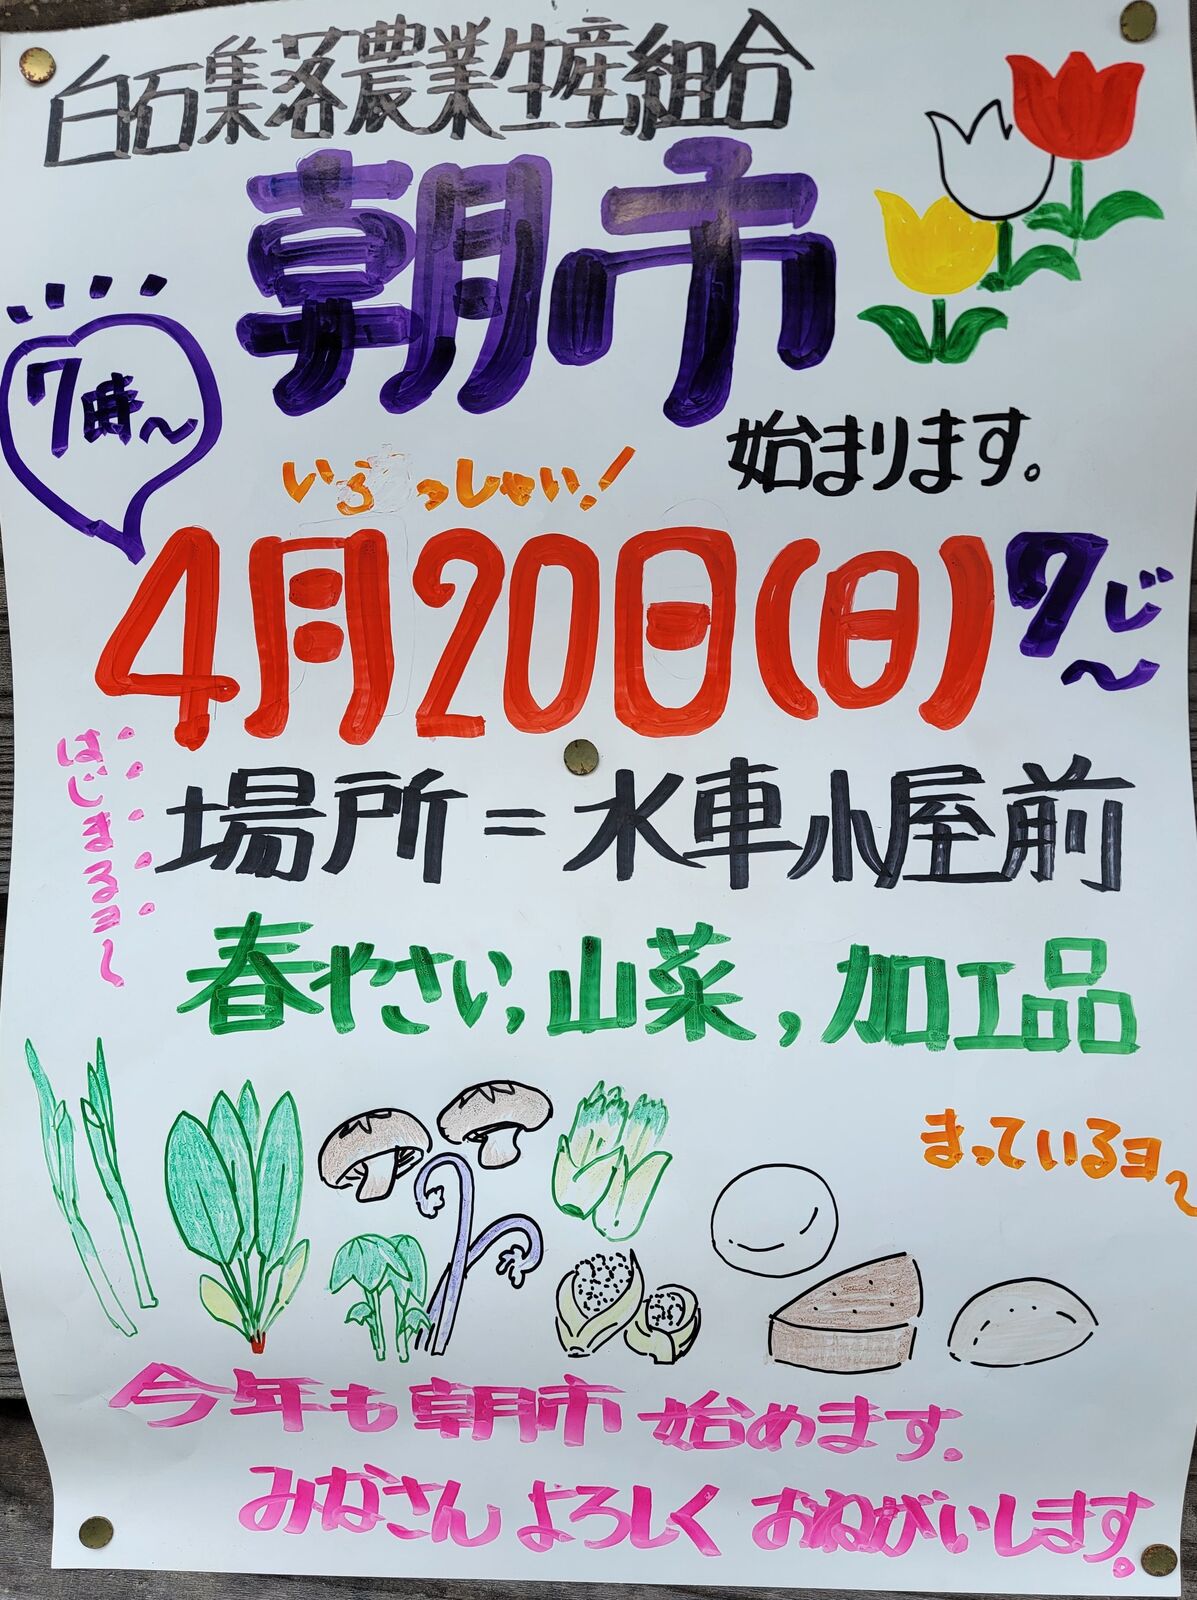 白石集落農業生産組合
朝市
7時～
始まります。
いらっしゃい!
4月20日(日)
7じ～
場所=水車小屋前
はじまるヨ～
春やさい,山菜,加工品
まっているヨ～
今年も朝市始めます。
みなさんよろしくおねがいします。